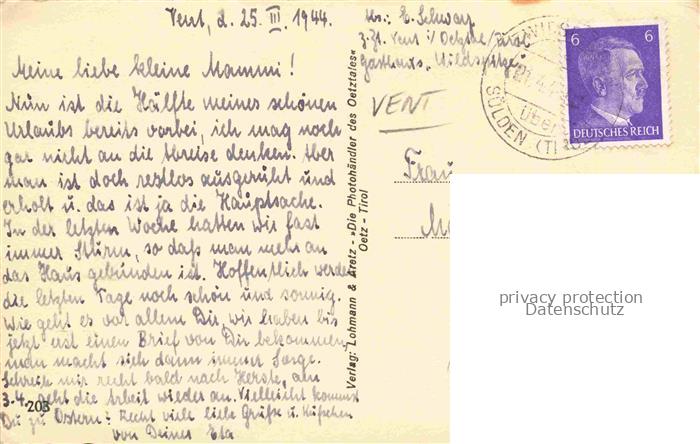 Vent, d. 25. III. 1944.
Meine liebe kleine Mammi!
Nun ist die Hälfte meines schönen
Urlaubs bereits vorbei, ich mag noch
gar nicht an die Abreise denken. Aber
man ist doch restlos ausgeruht und
erholt u. das ist ja die Hauptsache.
In der letzten Woche hatten wir fast
immer Sturm, so daß man mehr an
das Haus gebunden ist. Hoffentlich werden
die letzten Tage noch schön und sonnig.
Wie geht es vor allem Dir, wir haben bis
jetzt erst einen Brief von Dir bekommen,
man macht sich dann immer Sorge.
Schreibe mir recht bald nach Herste, am
3.4. geht die Arbeit wieder an. Vielleicht kommst
Du zu Ostern? Recht viele liebe Grüße u. Küßchen
von Deiner Eta
203
Verlag: Lohmann & Aretz - »Die Photohändler des Oetztales«
Oetz - Tirol
Abs.: E. Schwarz
z.Zt. Vent i/Oetztal/Tirol
Gasthaus „Wildspitze"
VENT
Frau
SÖLDEN (TIROL)
über
6 6
DEUTSCHES REICH
privacy protection
Datenschutz